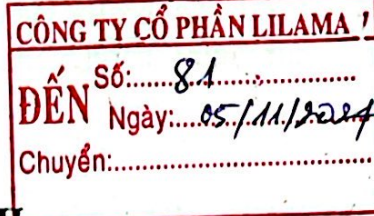 CÔNG TY CỔ PHẦN LILAMA
ĐẾN
Số:.....81......................
Ngày:.....05/11/2021
Chuyển:...............................